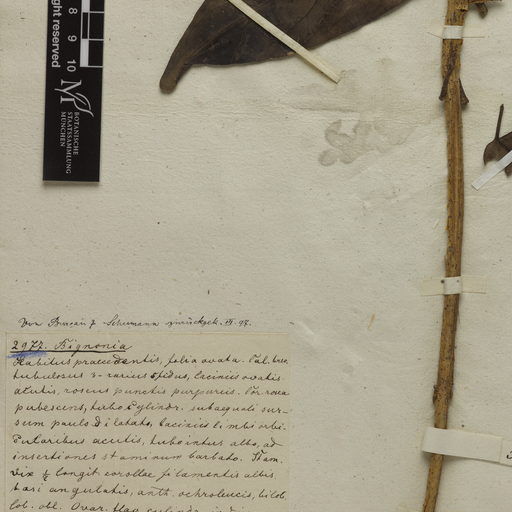 ght reserved
8 9 10
BOTANISCHE
STAATSSAMMLUNG
MÜNCHEN
Von Bureau & Schumann zurückgek. VII. 97.
2977. Bignonia
Habitus praecedentis, folia ovata. Cal.
tubulosus 3- rarius 5fidus, laciniis ovatis
acutis, roseus punctis purpureis. Cor. rosea
pubescens, tubo cylindr. subaequali sur-
sum paulo dilatato, laciniis limbi orbi-
cularibus acutis, tubo intus albo, ad
insertiones staminum barbato. Stam.
vix ½ longit. corollae filamentis albis
basi angulatis, anth. ochroleucis, bilob.
lob. obl. Ovar. flav. cylindr.